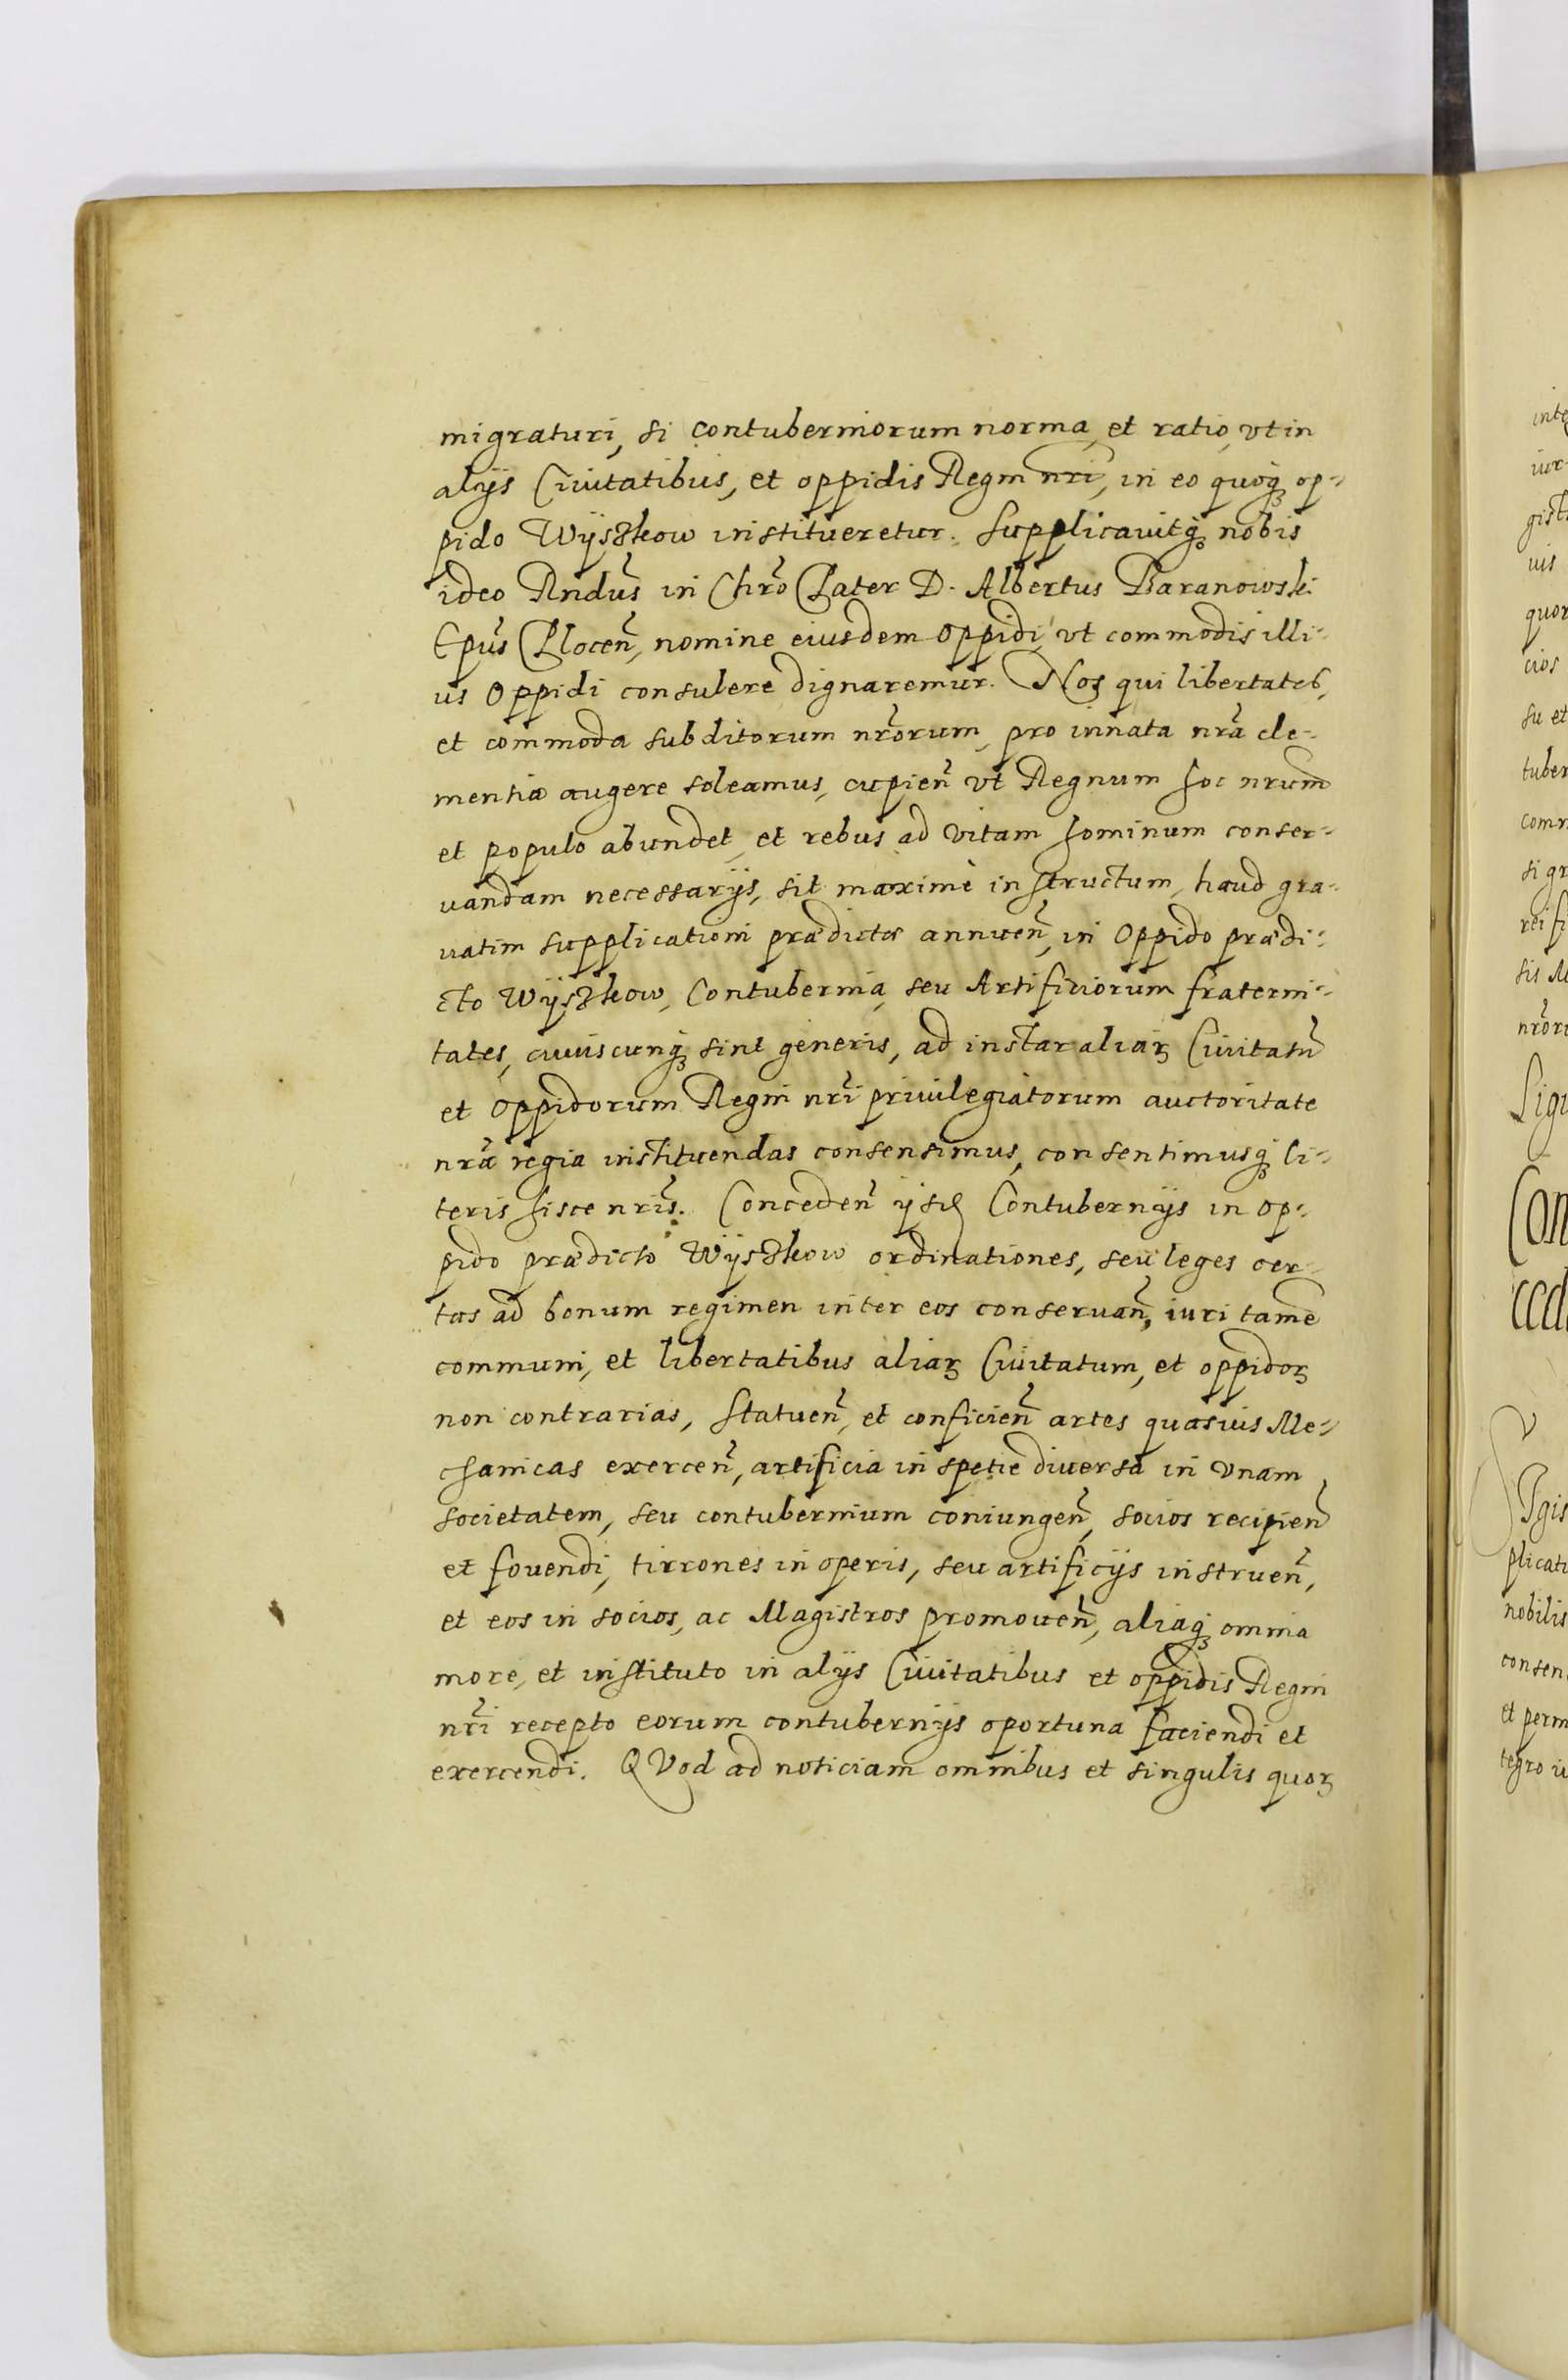 migraturi, si contuberniorum norma, et ratio, vt in
alijs Ciuitatibus, et oppidis Regni nri, in eo quoq; op-
pido Wyszkow institueretur. Supplicauitq; nobis
ideo Rndus in Chro Pater D. Albertus Baranowski
Epus Plocen, nomine eiusdem oppidi, vt commodis illi-
us Oppidi consulere dignaremur. Nos qui libertates,
et commoda subditorum nrorum, pro innata nra cle-
mentia augere soleamus, cupien vt Regnum hoc nrum
et populo abundet, et rebus ad vitam hominum conser-
uandam necessarijs, sit maximè instructum, haud gra-
uatim supplicationi prædictæ annuen, in Oppido prædi-
cto Wyszkow, Contubernia, seu Artificiorum fraterni-
tates, cuiuscunq; sint generis, ad instar aliaꝝ Ciuitatu
et Oppidorum Regni nri priuilegiatorum auctoritate
nra regia instituendas consensimus, consentimusq; li-
teris hisce nris. Conceden ijsd Contubernijs in op-
pido prædicto Wyszkow ordinationes, seu leges cer-
tas ad bonum regimen inter eos conseruan, iuri tame
communi, et libertatibus aliaꝝ Ciuitatum, et oppidoꝝ
non contrarias, statuen, et conficien artes quasuis Me-
chanicas exercen, artificia in spetie diuersa in vnam
societatem, seu contubernium coniungen, socios recipien
et fouendi, tirrones in operis, seu artificijs instruen,
et eos in socios, ac Magistros promouen, aliaq; omnia
more, et instituto in alijs Ciuitatibus et oppidis Regni
nri recepto eorum contubernijs oportuna faciendi et
exercendi. QVod ad noticiam omnibus et singulis quoꝝ